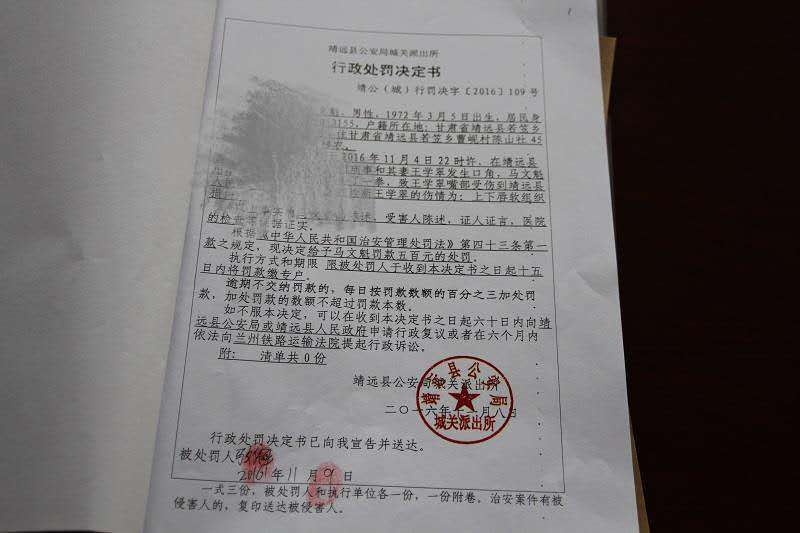 靖远县公安局城关派出所
行政处罚决定书
靖公（城）行罚决字〔2016〕109号
男性，1972年3月5日出生，居民身
3155，户籍所在地：甘肃省靖远县若笠乡
住甘肃省靖远县若笠乡曹岘村陈山社45
2016年11月4日22时许，在靖远县
和其妻王学翠发生口角，马文魁
一拳，致王学翠嘴部受伤到靖远县
王学翠的伤情为：上下唇软组织
陈述，受害人陈述，证人证言，医院
的检查 据证实。
根据《中华人民共和国治安管理处罚法》第四十三条第一
款之规定，现决定给予马文魁罚款五百元的处罚。
执行方式和期限 限被处罚人于收到本决定书之日起十五
日内将罚款缴专户。
逾期不交纳罚款的，每日按罚款数额的百分之三加处罚
款，加处罚款的数额不超过罚款本数。
如不服本决定，可以在收到本决定书之日起六十日内向靖
远县公安局或靖远县人民政府申请行政复议或者在六个月内
依法向兰州铁路运输法院提起行政诉讼。
附： 清单共0份
靖远县公安局城关派出所
二〇一六年十一月八日
靖远县公安局
城关派出所
行政处罚决定书已向我宣告并送达。
被处罚人
2016年11月9日
一式三份，被处罚人和执行单位各一份，一份附卷。治安案件有被
侵害人的，复印送达被侵害人。